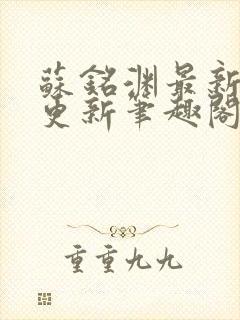 蘇銘淵最新
更新筆趣閣
重重九九